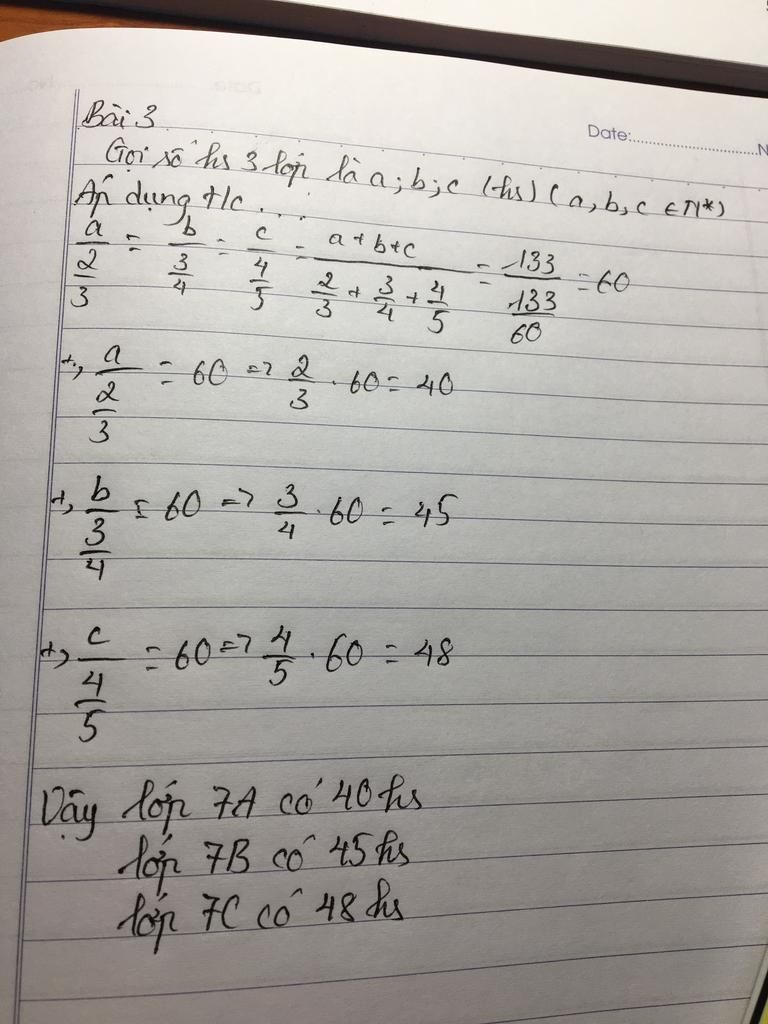 Date:
Bài 3
Gọi số hs 3 lớp là a; b; c (hs) (a, b, c ∈ N*)
Áp dụng t/c ....
a/(2/3) = b/(3/4) = c/(4/5) = (a+b+c)/(2/3 + 3/4 + 4/5) = 133/(133/60) = 60
+, a/(2/3) = 60 => 2/3 . 60 = 40
+, b/(3/4) = 60 => 3/4 . 60 = 45
+, c/(4/5) = 60 => 4/5 . 60 = 48
Vậy lớp 7A có 40 hs
lớp 7B có 45 hs
lớp 7C có 48 hs